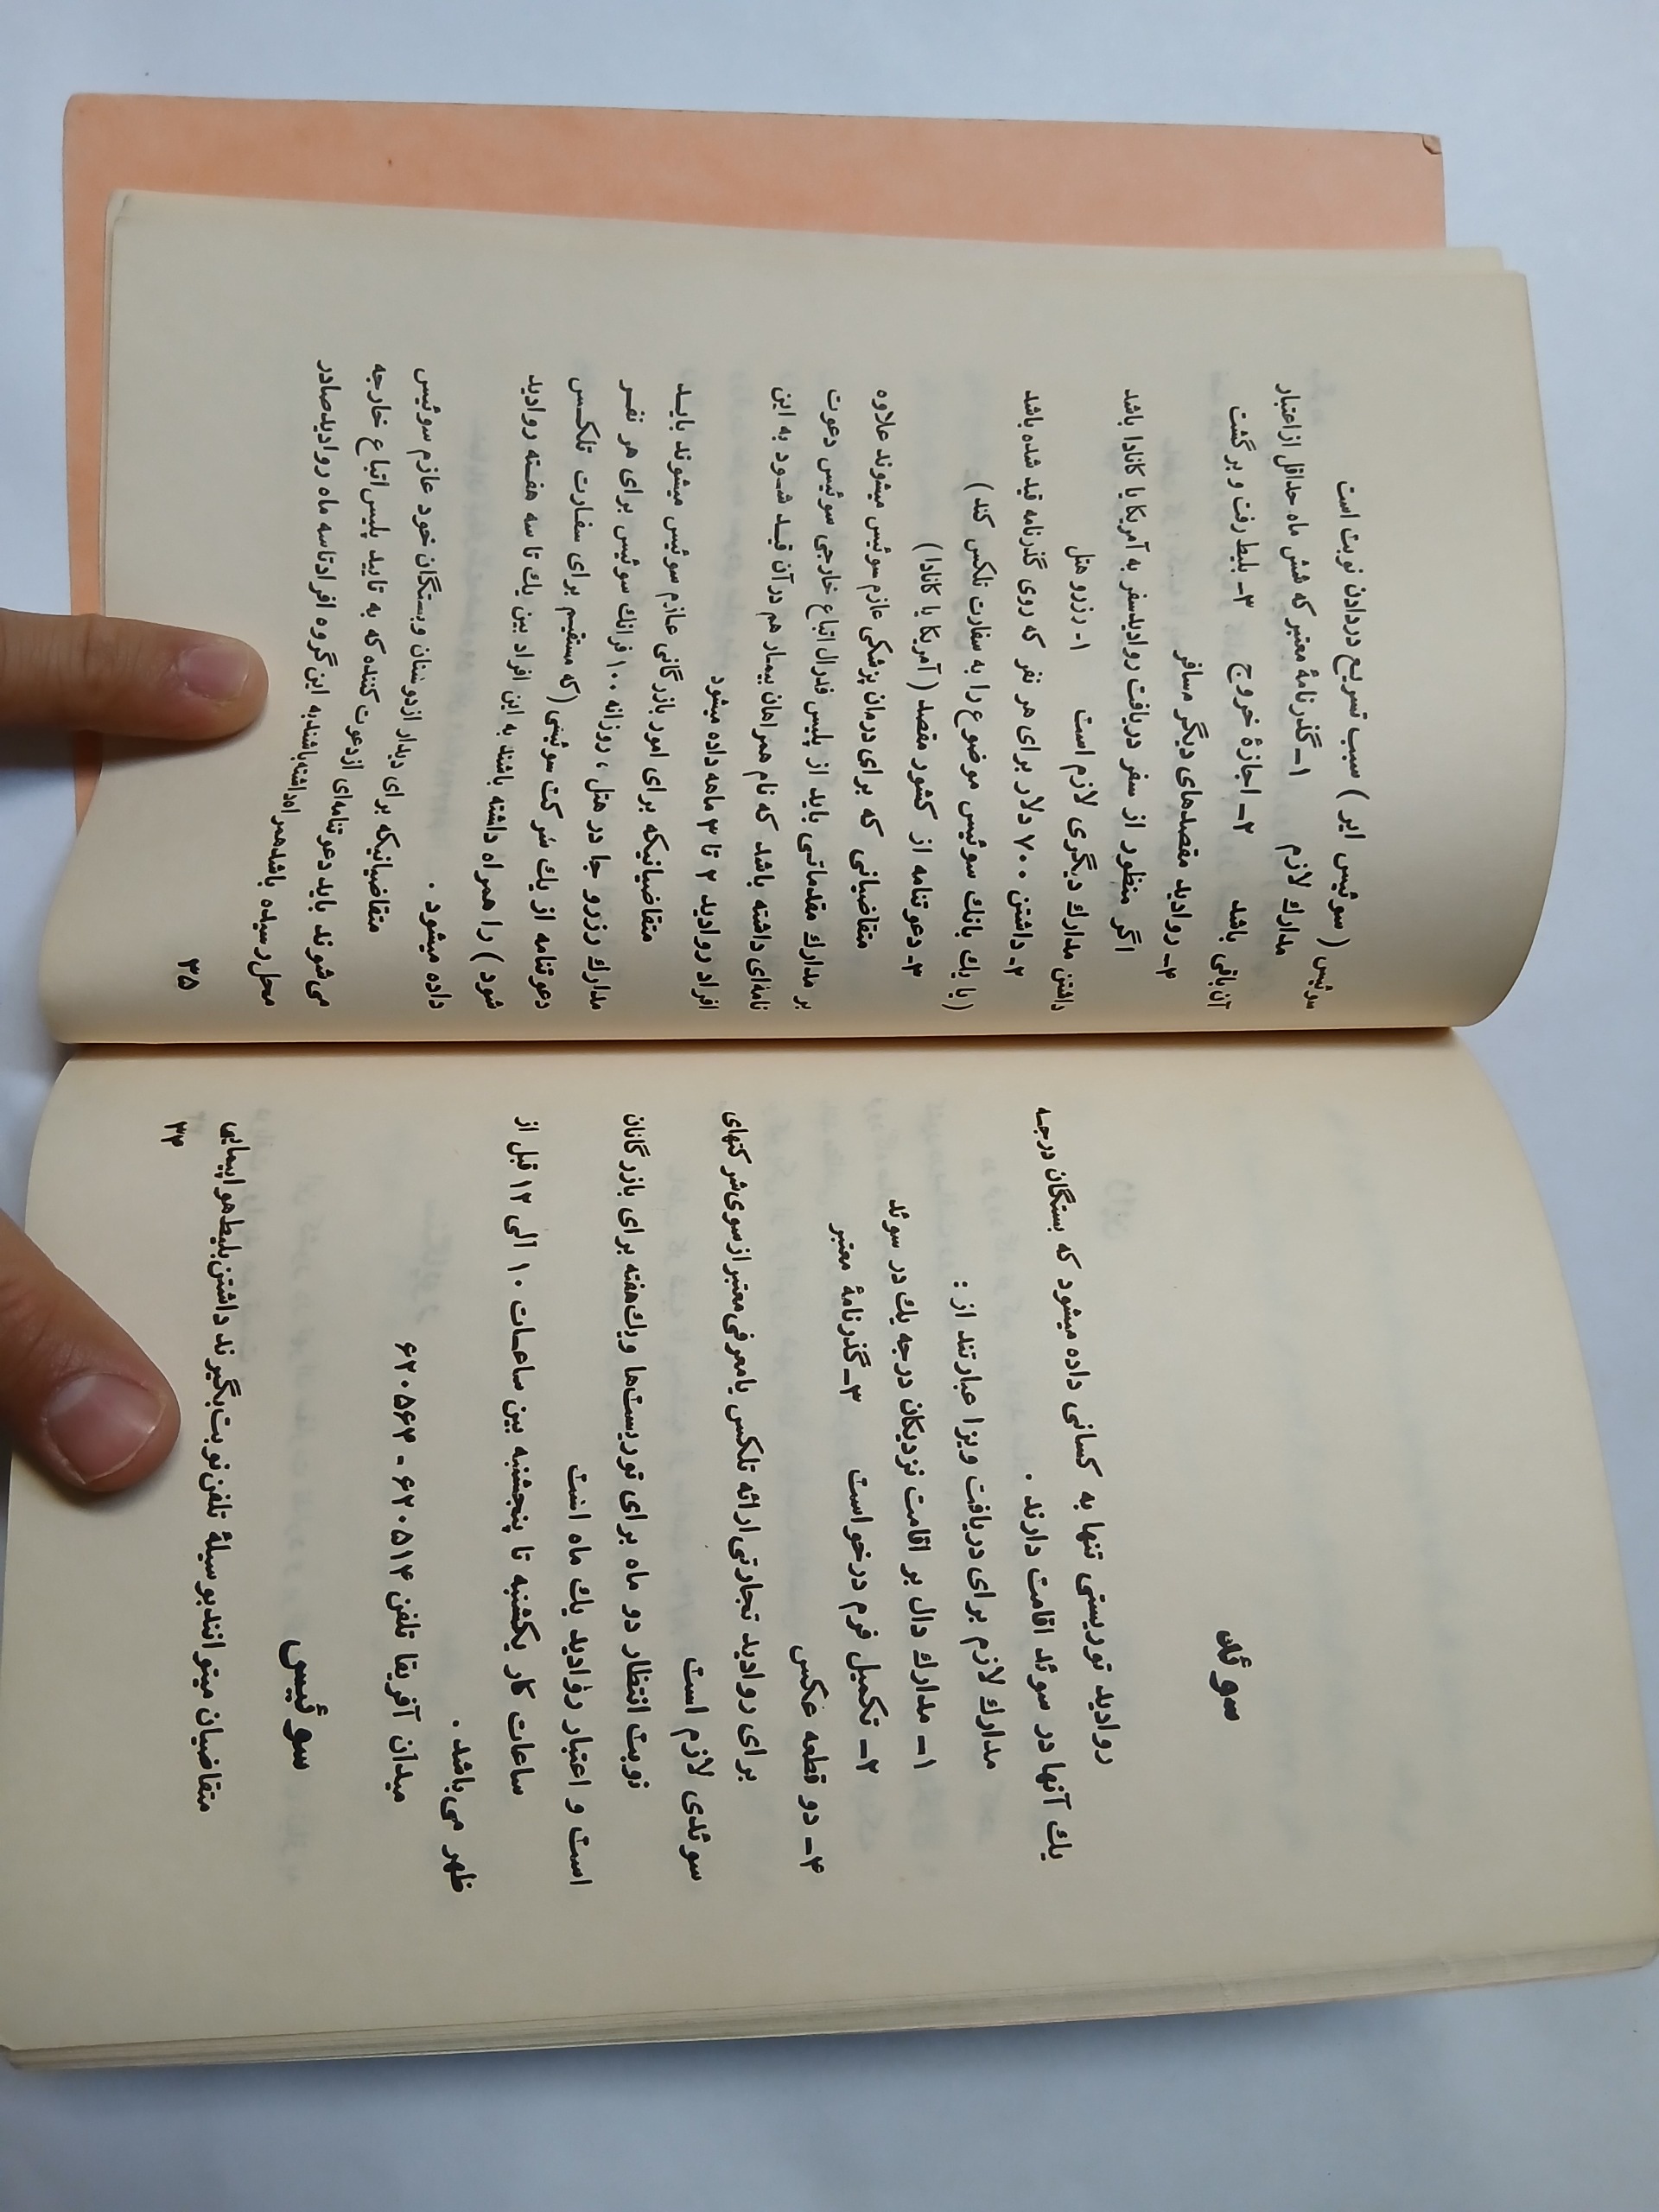 سوئد
روادید توریستی تنها به کسانی داده میشود که بستگان درجه
یك آنها در سوئد اقامت دارند .
مدارك لازم برای دریافت ویزا عبارتند از :
۱ـ مدارك دال بر اقامت نزدیکان درجه یك در سوئد
۲ـ تکمیل فرم درخواست ۳ـ گذرنامهٔ معتبر
۴ـ دو قطعه عکس
برای روادید تجارتی ارائه تلکس یا معرفی معتبر از سوی شرکتهای
سوئدی لازم است
نوبت انتظار دو ماه برای توریست‌ها و یك هفته برای بازرگانان
است و اعتبار روادید یك ماه است
ساعات کار یکشنبه تا پنجشنبه بین ساعات ۱۰ الی ۱۲ قبل از
ظهر می‌باشد .
میدان آفریقا تلفن ۶۲۰۵۱۴ - ۶۲۰۵۶۴
سوئیس
متقاضیان میتوانند بوسیلهٔ تلفن نوبت بگیرند داشتن بلیط هواپیمایی
۳۴
سوئیس ( سوئیس ایر ) سبب تسریع در دادن نوبت است
مدارك لازم ۱ـ گذرنامهٔ معتبر که شش ماه حداقل از اعتبار
آن باقی باشد ۲ـ اجازهٔ خروج ۳ـ بلیط رفت و برگشت
۴ـ روادید مقصدهای دیگر مسافر
اگر منظور از سفر دریافت روادید سفر به آمریکا یا کانادا باشد
داشتن مدارك دیگری لازم است ۱- رزرو هتل
۲ـ داشتن ۷۰۰ دلار برای هر نفر که روی گذرنامه قید شده باشد
(یا یك بانك سوئیس موضوع را به سفارت تلکس کند)
۳ـ دعوتنامه از کشور مقصد (آمریکا یا کانادا)
متقاضیانی که برای درمان پزشکی عازم سوئیس میشوند علاوه
بر مدارك مقدماتی باید از پلیس فدرال اتباع خارجی سوئیس دعوت
نامه‌ای داشته باشد که نام همراهان بیمار هم در آن قید شود به این
افراد روادید ۲ تا ۳ ماهه داده میشود
متقاضیانیکه برای امور بازرگانی عازم سوئیس میشوند باید
مدارك رزرو جا در هتل ، روزانه ۱۰۰ فرانك سوئیس برای هر نفر
دعوتنامه از یك شرکت سوئیسی (که مستقیم برای سفارت تلکس
شود ) را همراه داشته باشند به این افراد بین یك تا سه هفته روادید
داده میشود .
متقاضیانیکه برای دیدار از دوستان و بستگان خود عازم سوئیس
می‌شوند باید دعوتنامه‌ای از دعوت کننده که به تایید پلیس اتباع خارجه
محل رسیده باشد همراه داشته باشند به این گروه افراد تا سه ماه روادید صادر
۳۵